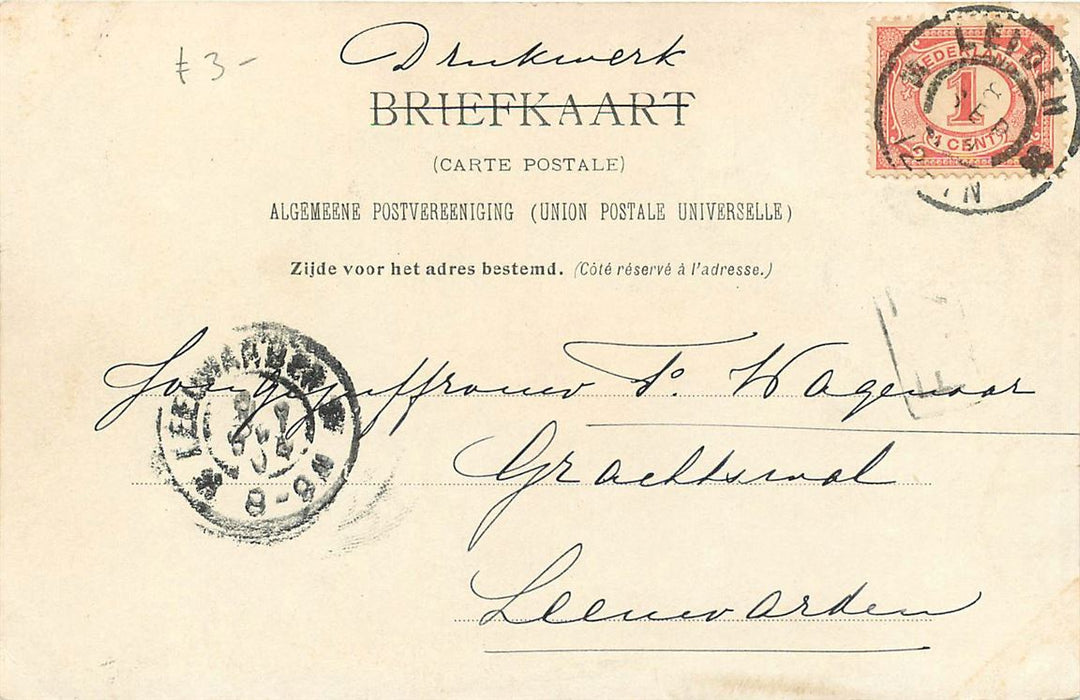 Drukwerk
ƒ 3-
BRIEFKAART
(CARTE POSTALE)
ALGEMEENE POSTVEREENIGING (UNION POSTALE UNIVERSELLE)
Zijde voor het adres bestemd. (Côté réservé à l'adresse.)
NEDERLAND
1
CENT
LEIDEN
LEEUWARDEN
8-9N
Jongejuffrouw T. Wagenaar
Grachtswal
Leeuwarden